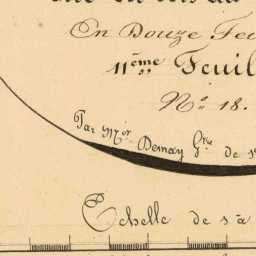 En Douze Feu
11ème Feuil
No. 18.
Par Mr. Demay Gre. de s
Echelle de sa